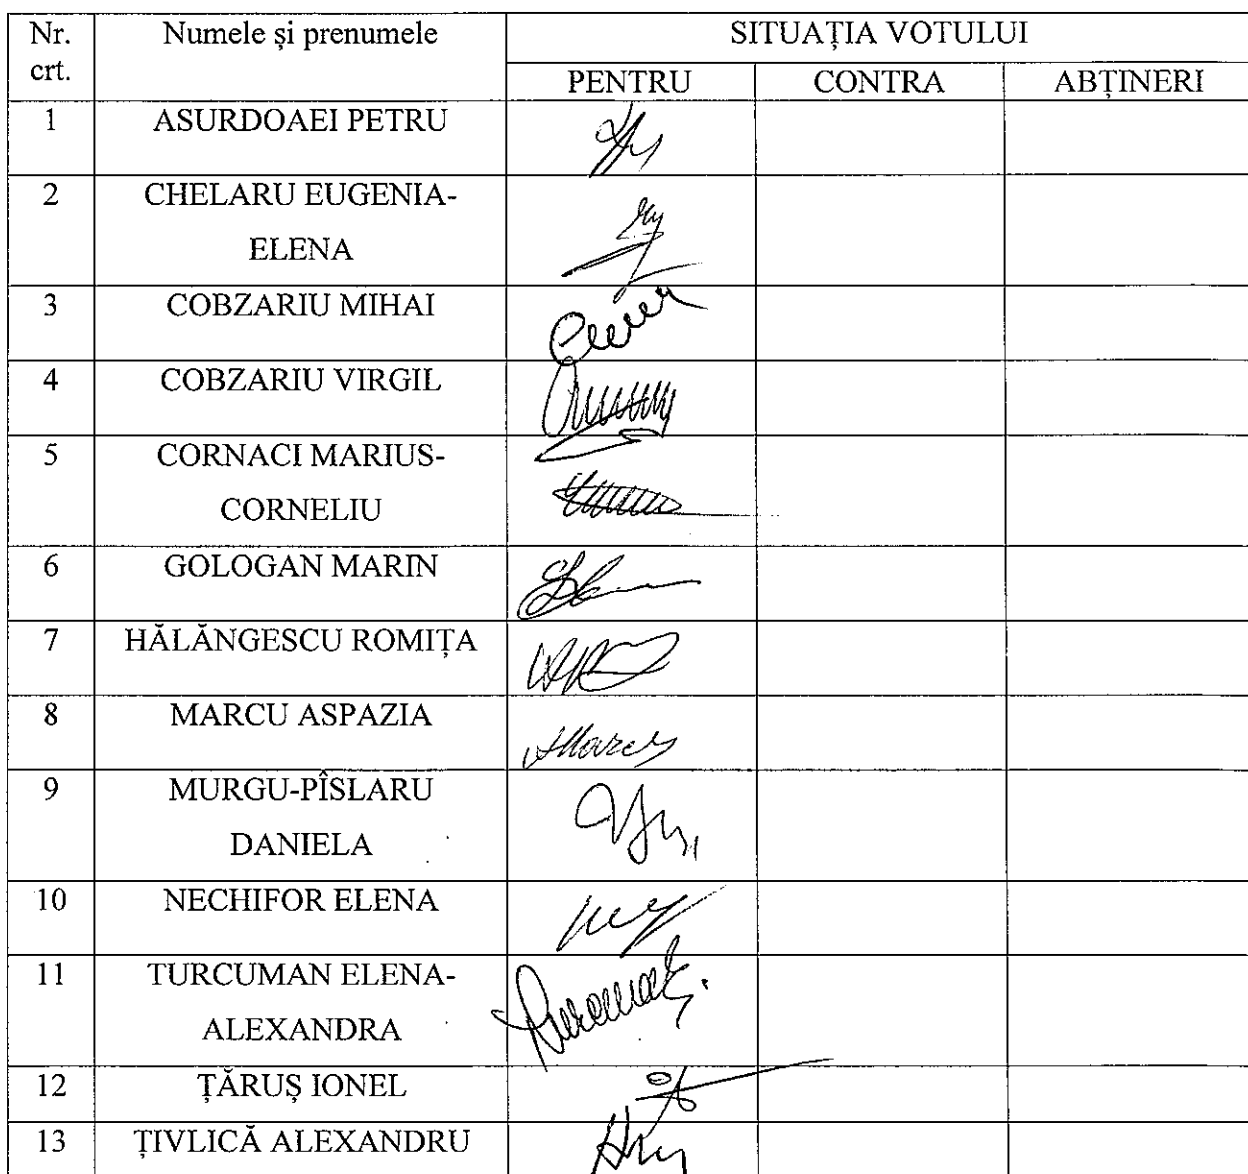 Nr. crt.
Numele și prenumele
SITUAȚIA VOTULUI
PENTRU CONTRA ABȚINERI
1 ASURDOAEI PETRU
2 CHELARU EUGENIA-
ELENA
3 COBZARIU MIHAI
4 COBZARIU VIRGIL
5 CORNACI MARIUS-
CORNELIU
6 GOLOGAN MARIN
7 HĂLĂNGESCU ROMIȚA
8 MARCU ASPAZIA
9 MURGU-PÎSLARU
DANIELA
10 NECHIFOR ELENA
11 TURCUMAN ELENA-
ALEXANDRA
12 ȚĂRUȘ IONEL
13 ȚIVLICĂ ALEXANDRU